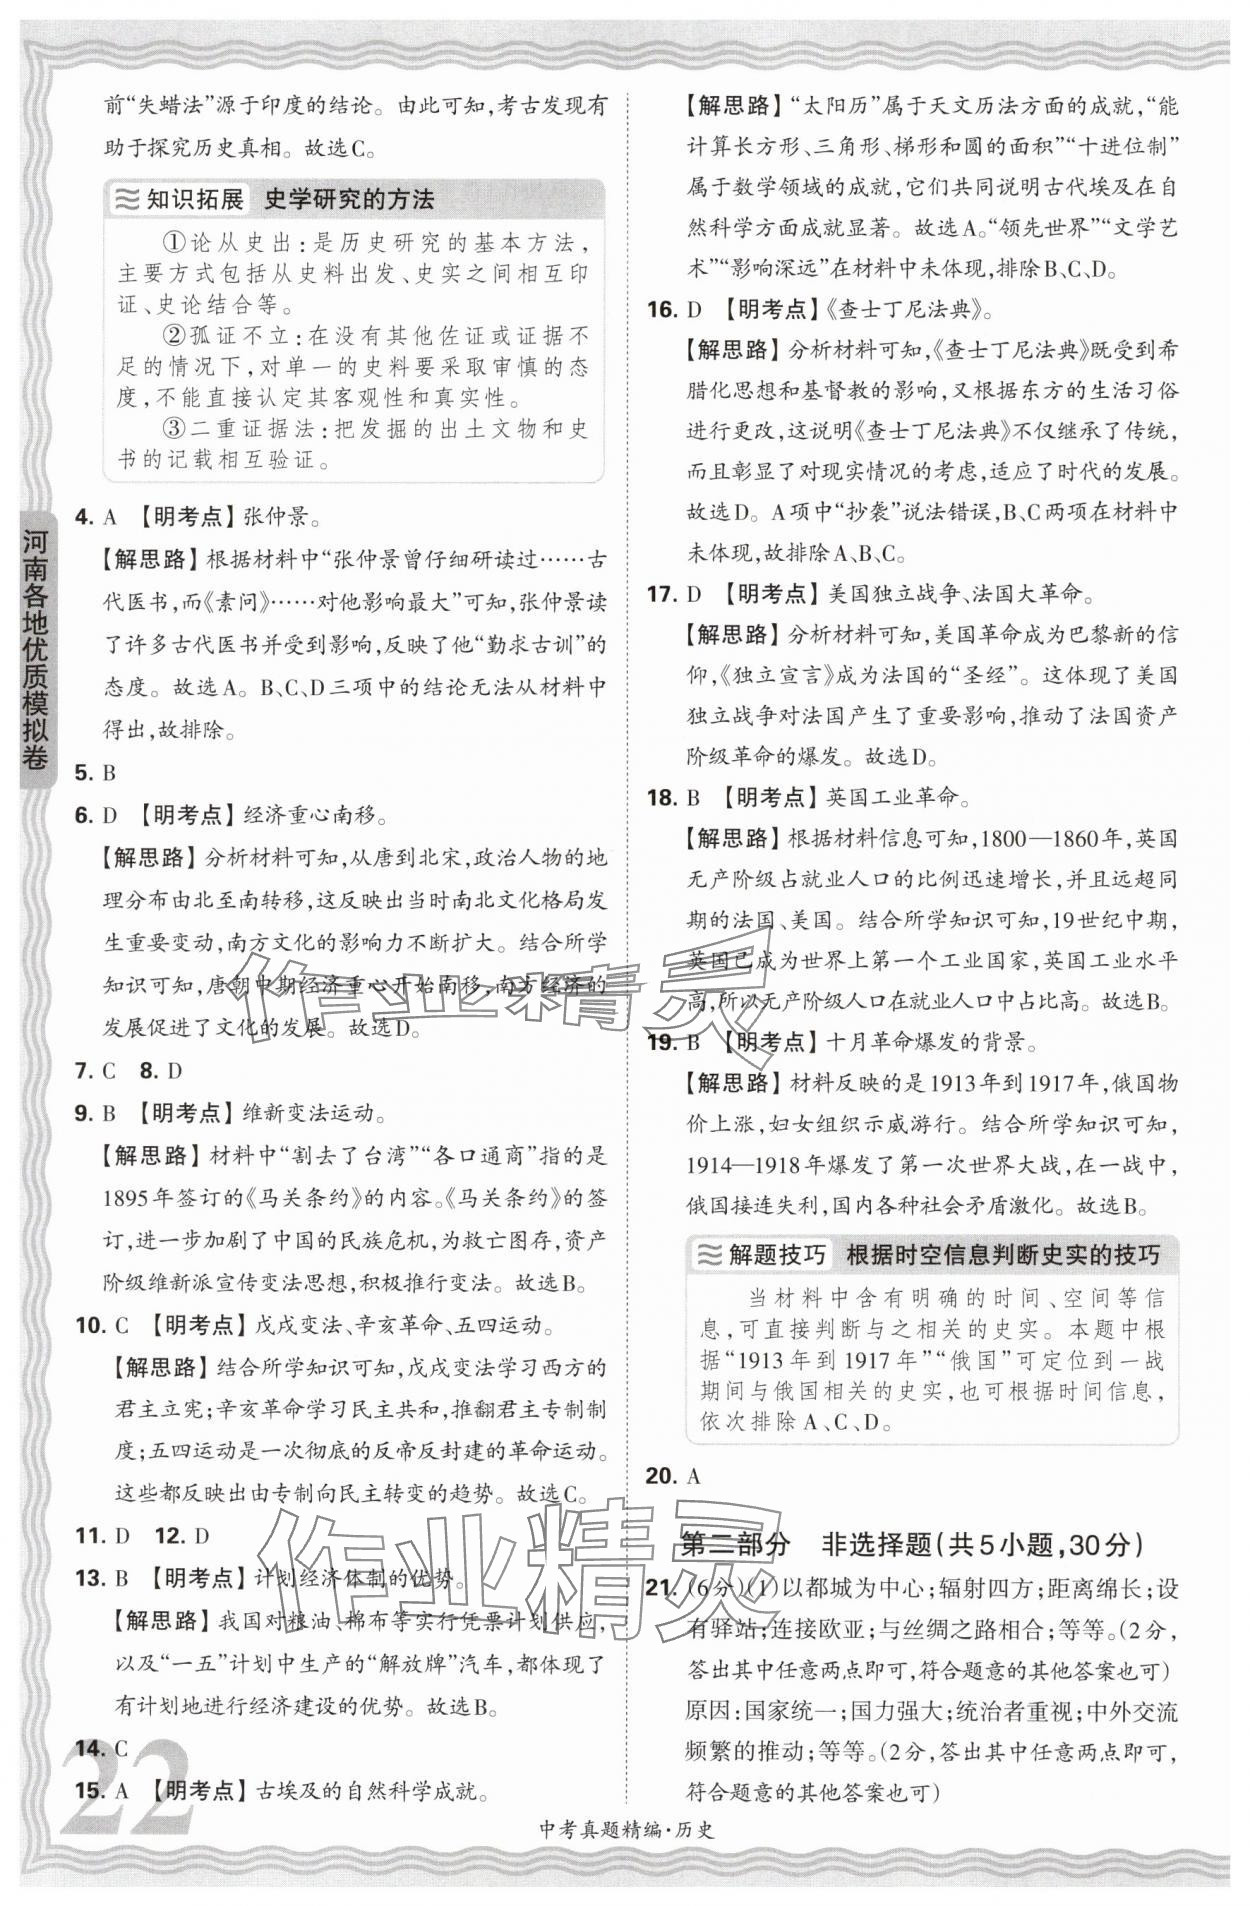 前“失蜡法”源于印度的结论。由此可知,考古发现有
助于探究历史真相。故选C。
知识拓展 史学研究的方法
①论从史出:是历史研究的基本方法,
主要方式包括从史料出发、史实之间相互印
证、史论结合等。
②孤证不立:在没有其他佐证或证据不
足的情况下,对单一的史料要采取审慎的态
度,不能直接认定其客观性和真实性。
③二重证据法:把发掘的出土文物和史
书的记载相互验证。
4. A 【明考点】张仲景。
【解思路】根据材料中“张仲景曾仔细研读过……古
代医书,而《素问》……对他影响最大”可知,张仲景读
了许多古代医书并受到影响,反映了他“勤求古训”的
态度。故选A。B、C、D三项中的结论无法从材料中
得出,故排除。
5. B
6. D 【明考点】经济重心南移。
【解思路】分析材料可知,从唐到北宋,政治人物的地
理分布由北至南转移,这反映出当时南北文化格局发
生重要变动,南方文化的影响力不断扩大。结合所学
知识可知,唐朝中期经济重心开始南移,南方经济的
发展促进了文化的发展。故选D。
7. C 8. D
9. B 【明考点】维新变法运动。
【解思路】材料中“割去了台湾”“各口通商”指的是
1895年签订的《马关条约》的内容。《马关条约》的签
订,进一步加剧了中国的民族危机,为救亡图存,资产
阶级维新派宣传变法思想,积极推行变法。故选B。
10. C 【明考点】戊戌变法、辛亥革命、五四运动。
【解思路】结合所学知识可知,戊戌变法学习西方的
君主立宪;辛亥革命学习民主共和,推翻君主专制制
度;五四运动是一次彻底的反帝反封建的革命运动。
这些都反映出由专制向民主转变的趋势。故选C。
11. D 12. D
13. B 【明考点】计划经济体制的优势。
【解思路】我国对粮油、棉布等实行凭票计划供应,
以及“一五”计划中生产的“解放牌”汽车,都体现了
有计划地进行经济建设的优势。故选B。
14. C
15. A 【明考点】古埃及的自然科学成就。
【解思路】“太阳历”属于天文历法方面的成就,“能
计算长方形、三角形、梯形和圆的面积”“十进位制”
属于数学领域的成就,它们共同说明古代埃及在自
然科学方面成就显著。故选A。“领先世界”“文学艺
术”“影响深远”在材料中未体现,排除B、C、D。
16. D 【明考点】《查士丁尼法典》。
【解思路】分析材料可知,《查士丁尼法典》既受到希
腊化思想和基督教的影响,又根据东方的生活习俗
进行更改,这说明《查士丁尼法典》不仅继承了传统,
而且彰显了对现实情况的考虑,适应了时代的发展。
故选D。A项中“抄袭”说法错误,B、C两项在材料中
未体现,故排除A、B、C。
17. D 【明考点】美国独立战争、法国大革命。
【解思路】分析材料可知,美国革命成为巴黎新的信
仰,《独立宣言》成为法国的“圣经”。这体现了美国
独立战争对法国产生了重要影响,推动了法国资产
阶级革命的爆发。故选D。
18. B 【明考点】英国工业革命。
【解思路】根据材料信息可知,1800—1860年,英国
无产阶级占就业人口的比例迅速增长,并且远超同
期的法国、美国。结合所学知识可知,19世纪中期,
英国已成为世界上第一个工业国家,英国工业水平
高,所以无产阶级人口在就业人口中占比高。故选B。
19. B 【明考点】十月革命爆发的背景。
【解思路】材料反映的是1913年到1917年,俄国物
价上涨,妇女组织示威游行。结合所学知识可知,
1914—1918年爆发了第一次世界大战,在一战中,
俄国接连失利,国内各种社会矛盾激化。故选B。
解题技巧 根据时空信息判断史实的技巧
当材料中含有明确的时间、空间等信
息,可直接判断与之相关的史实。本题中根
据“1913年到1917年”“俄国”可定位到一战
期间与俄国相关的史实,也可根据时间信息,
依次排除A、C、D。
20. A
第二部分 非选择题(共5小题,30分)
21. (6分)(1)以都城为中心;辐射四方;距离绵长;设
有驿站;连接欧亚;与丝绸之路相合;等等。(2分,
答出其中任意两点即可,符合题意的其他答案也可)
原因:国家统一;国力强大;统治者重视;中外交流
频繁的推动;等等。(2分,答出其中任意两点即可,
符合题意的其他答案也可)
河南各地优质模拟卷
22
中考真题精编·历史
作业精灵
作业精灵